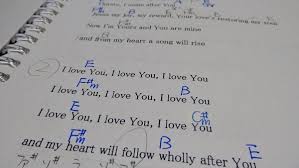 Thanks, I will follow You
Jesus my joy, my reward, Your love's
Now I'm Yours and You are mine
and from my heart a song will rise
2 E
I love You, I love You, I love You
F#m B
I love You, I love You, I love You
E C#m
I love You, I love You, I love You
F#m B E
and my heart will follow wholly after You